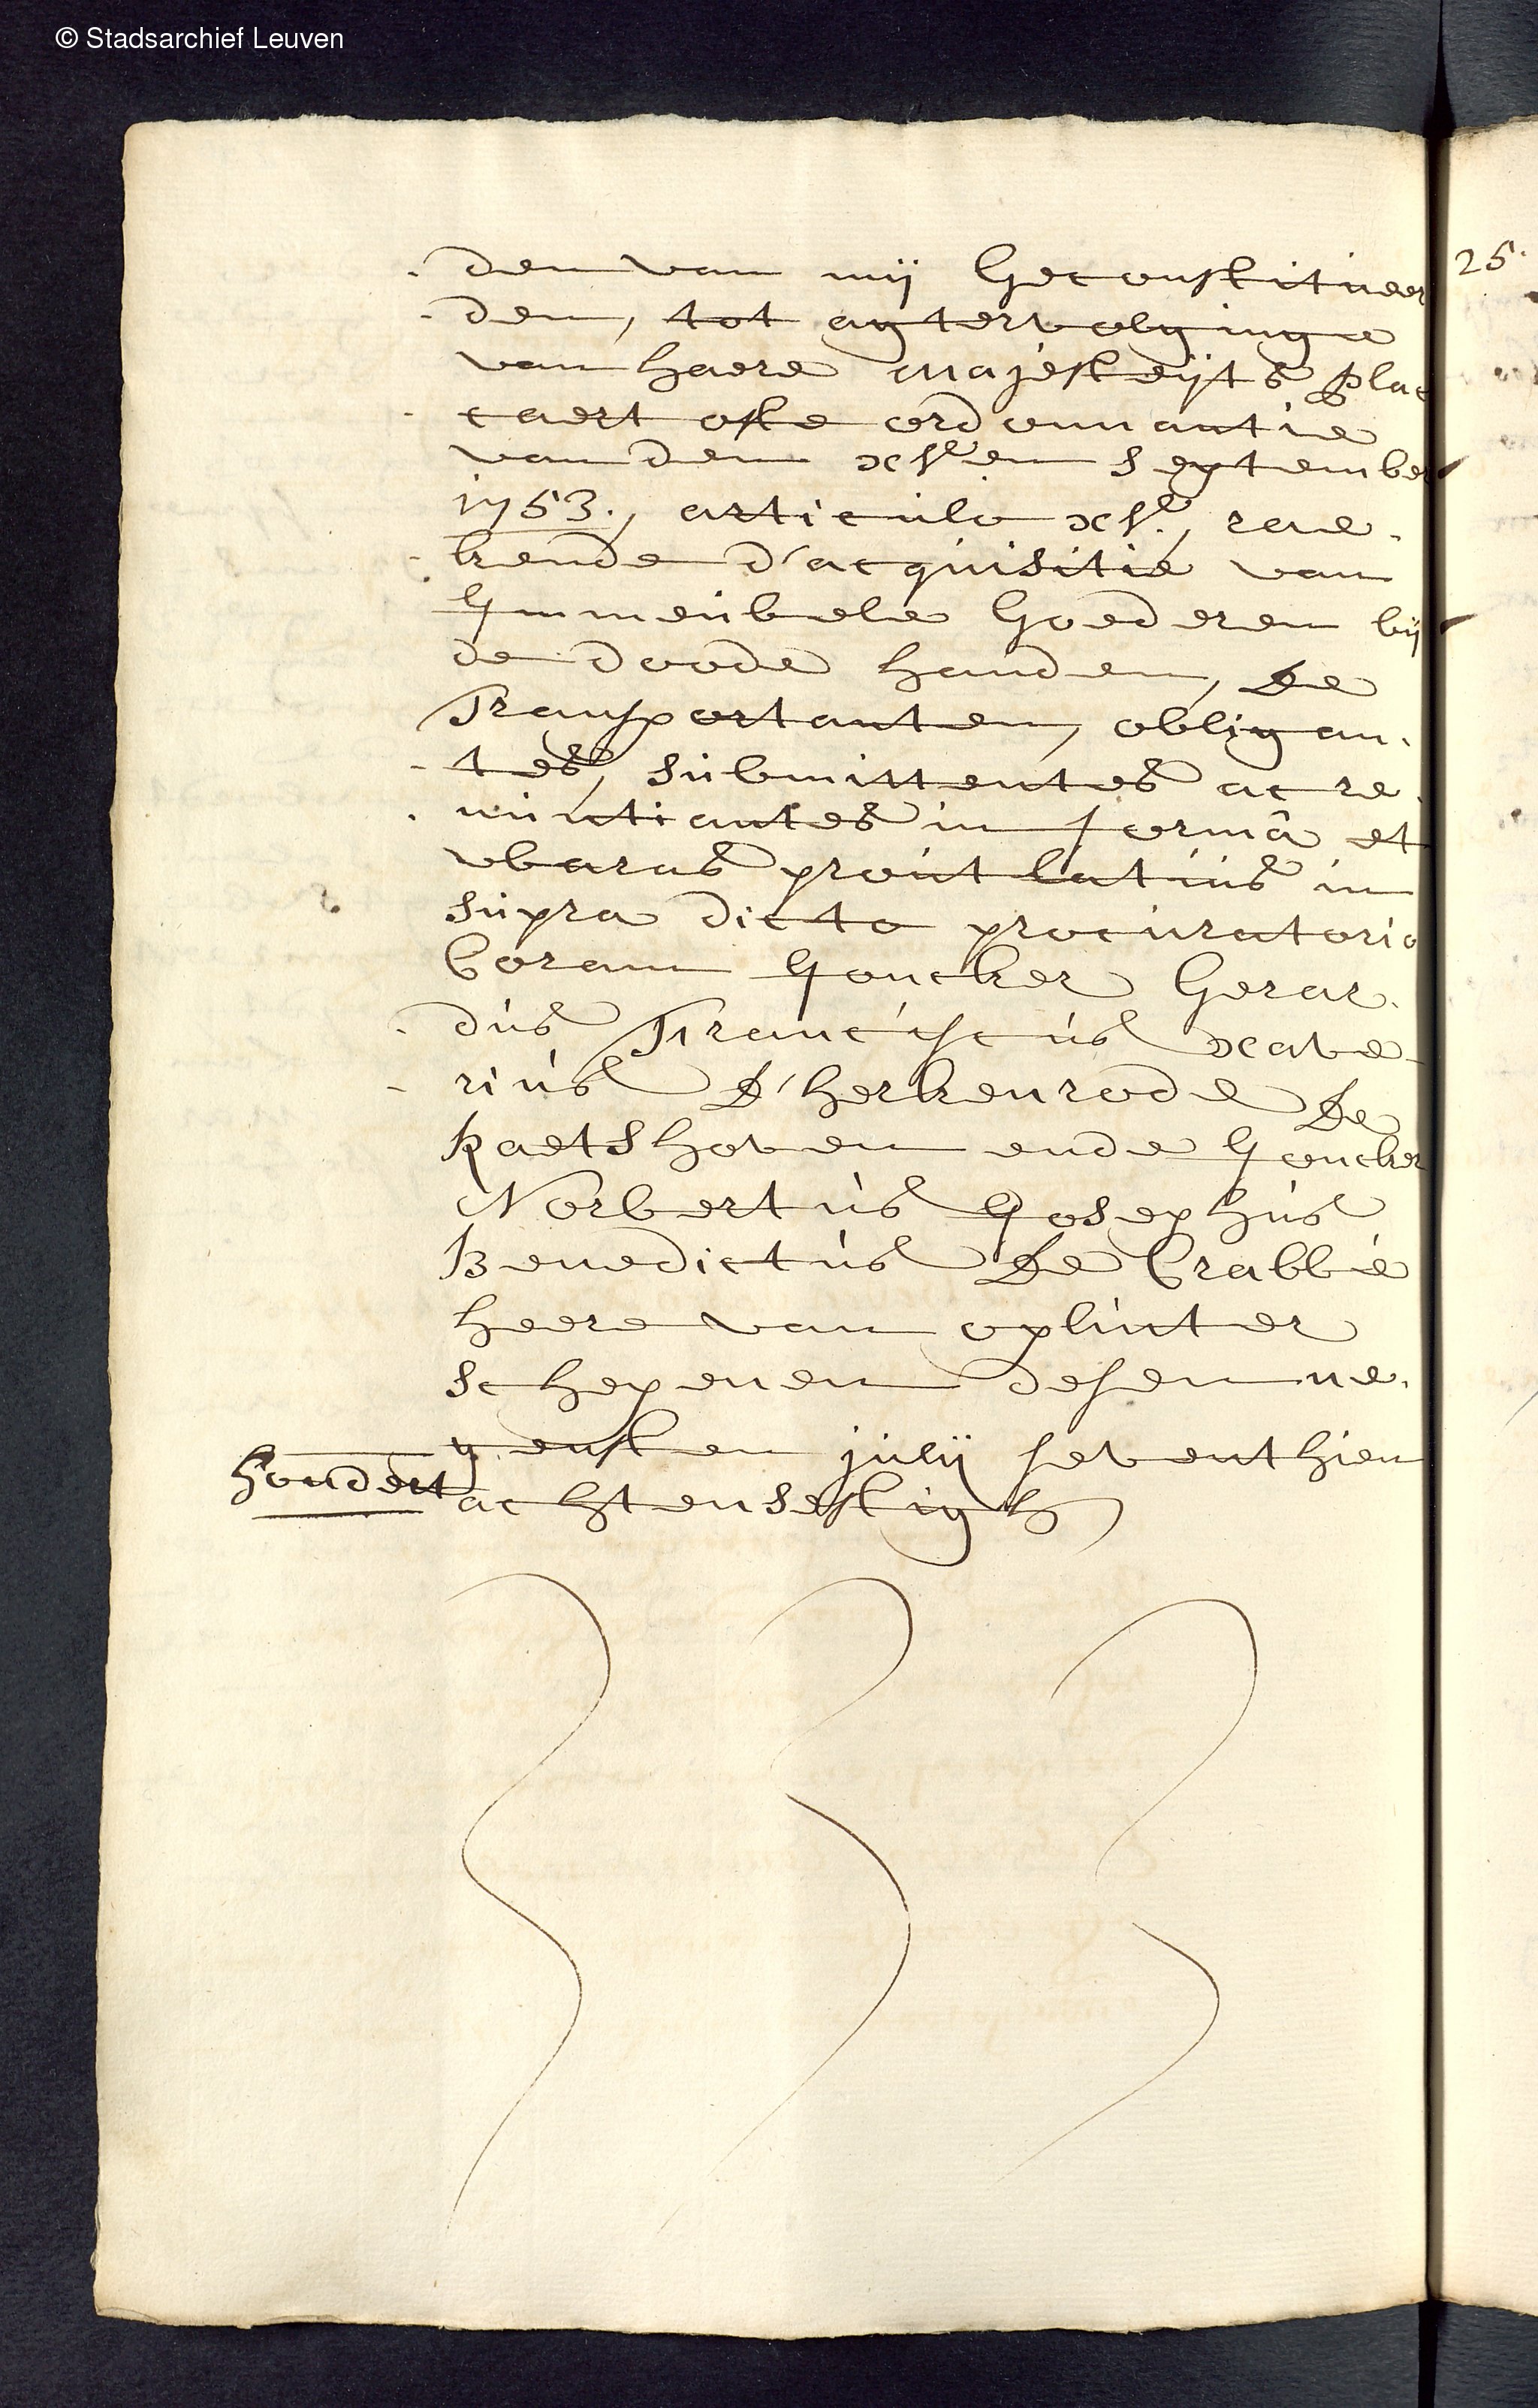 © Stadsarchief Leuven
25.
den van mij Geconstitueer
den, tot agtervolginge
van haere majesteijts plac
caert ofte ordonnantie
van den xv.en September
1753., articulo xv., rae
kende d'acquisitie van
Immeubele Goederen bij
de doode handen, De
Transportanten, obligan
tes, submittentes ac re
nuntiantes in formâ et
waras prout latius in
supra dicto procuratorio
Coram Joncker Gerar
dus Franciscus xave
rius D'herkenrode De
Raetshoven ende Joncker
Norbertus Josephus
Benedictus De Crabbé
heere van oplinter
schepenen desen ne
gensten julij seventhien
hondert achtensestigh